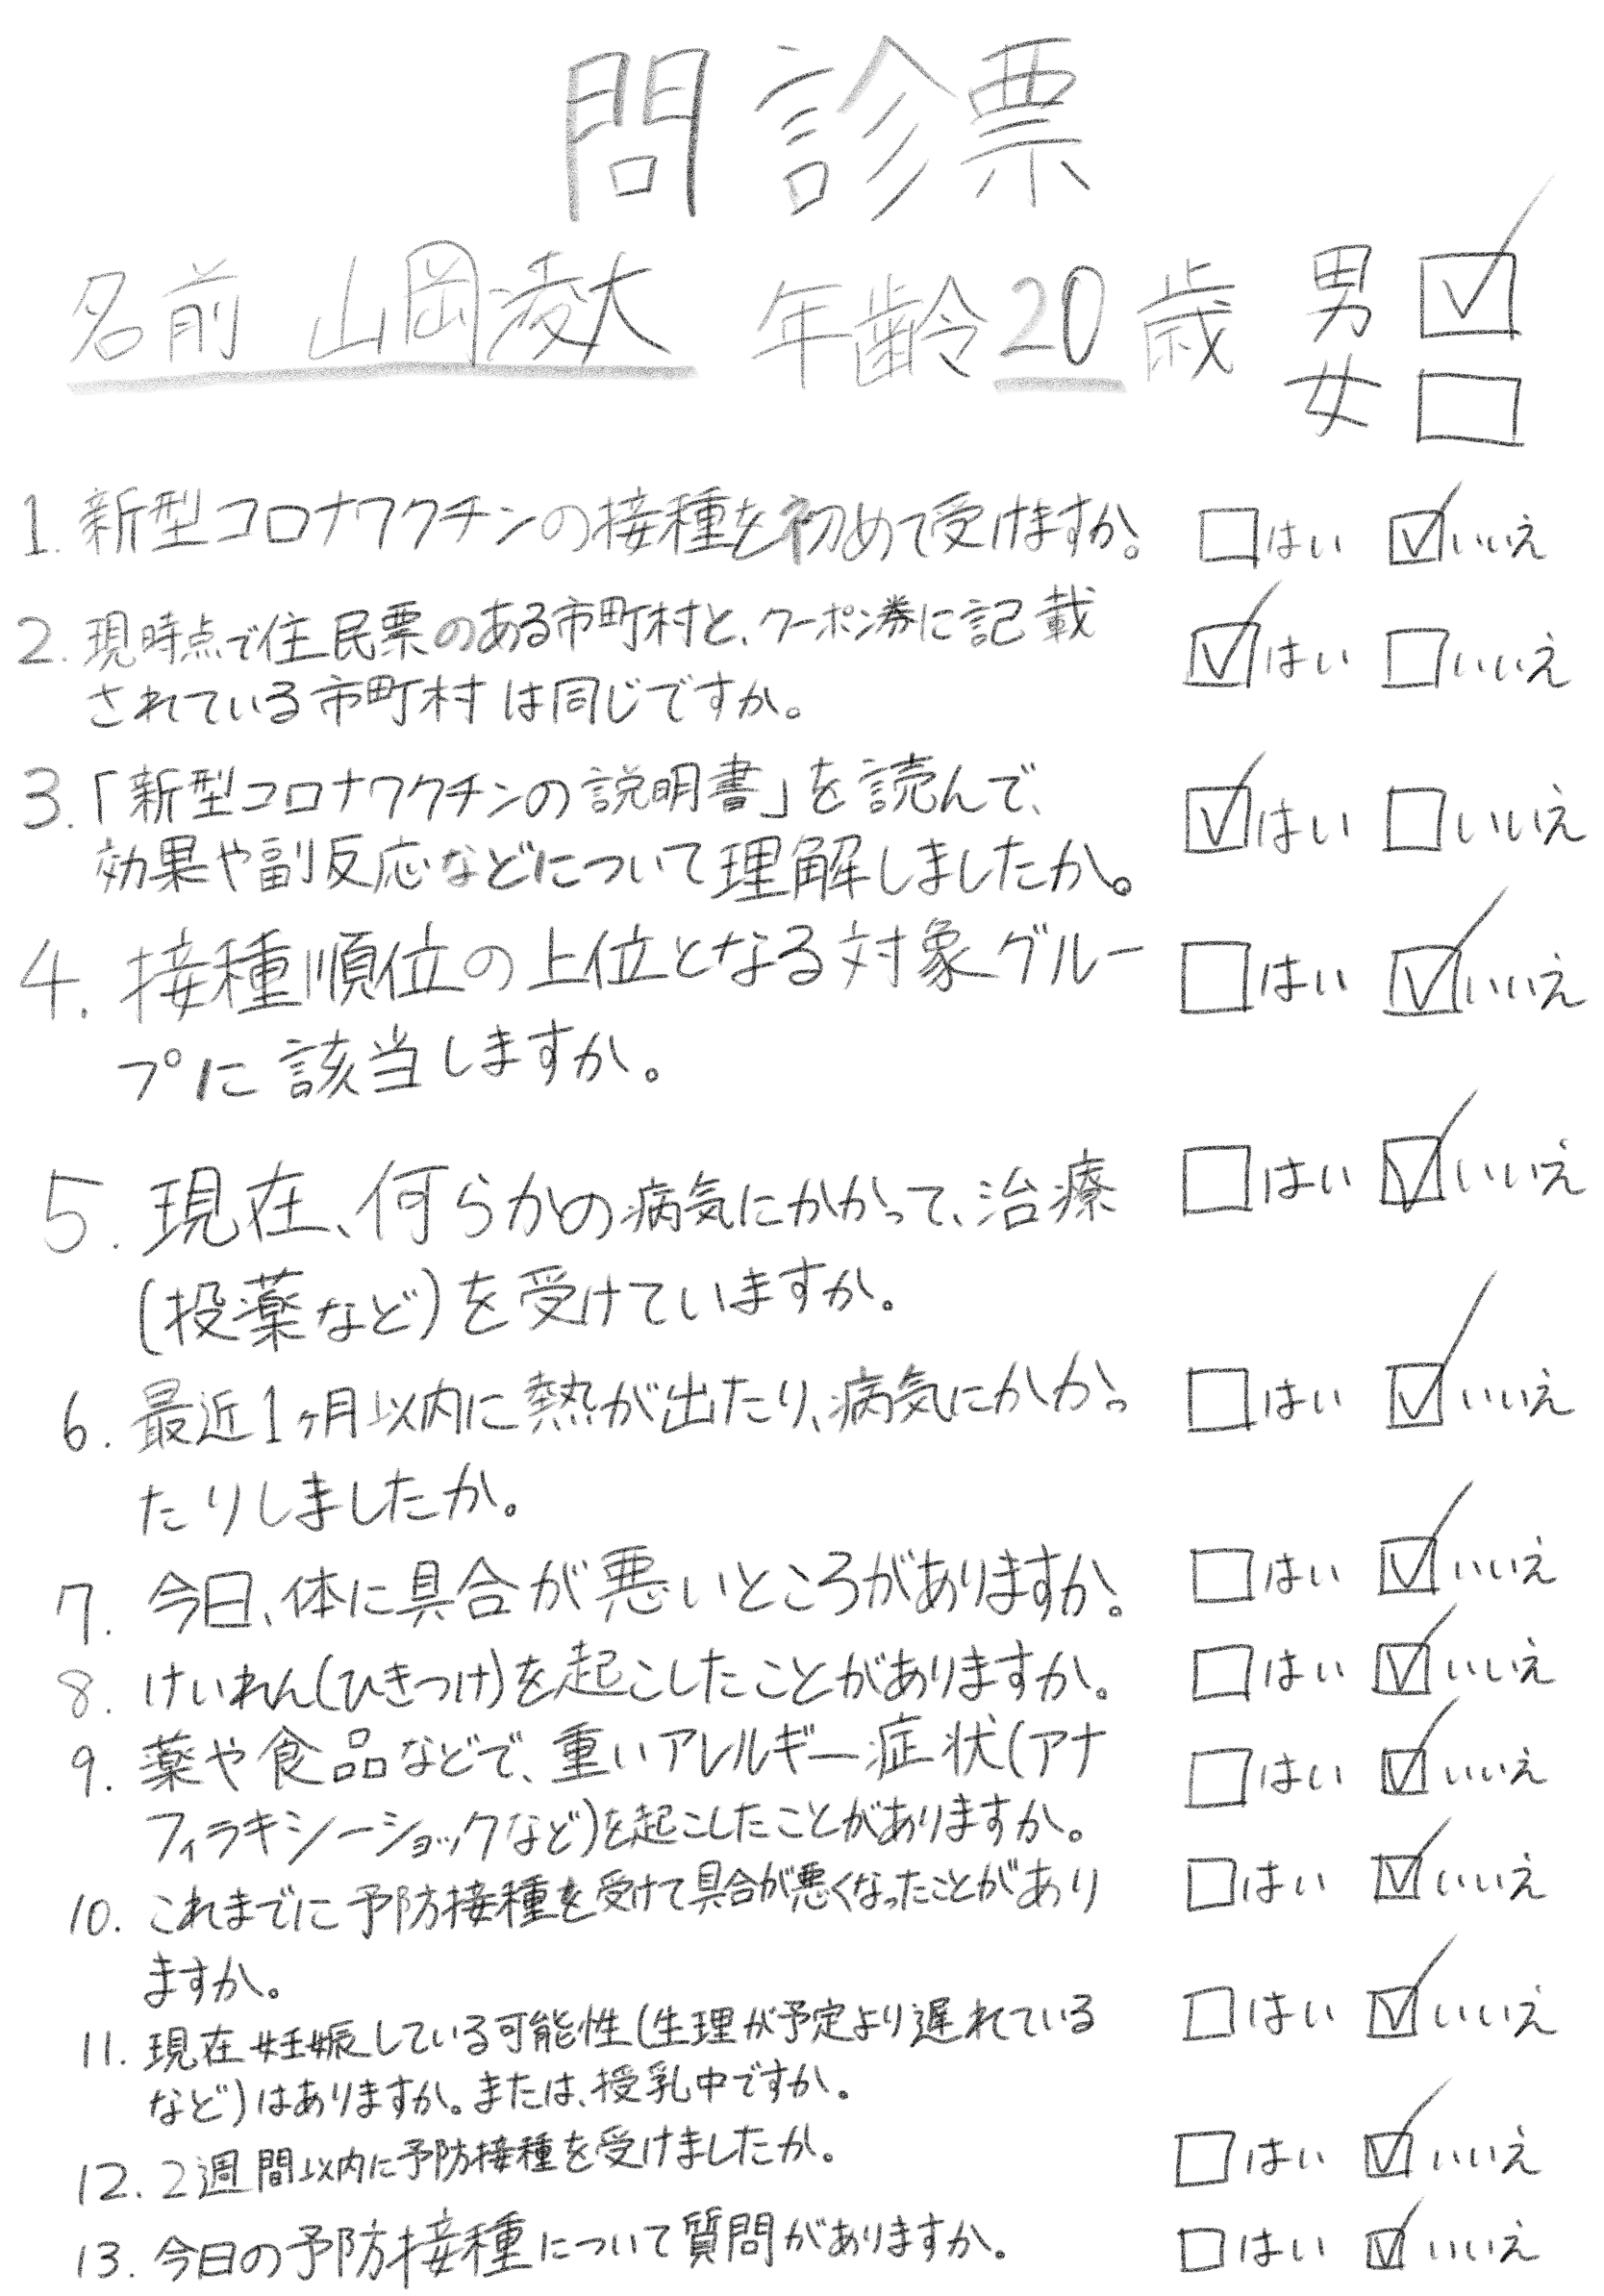 問診票
名前 山岡凌大 年齢 20 歳 男 ☑
女 □
1. 新型コロナワクチンの接種を初めて受けますか。 □はい ☑いいえ
2. 現時点で住民票のある市町村と、クーポン券に記載 ☑はい □いいえ
されている市町村は同じですか。
3. 「新型コロナワクチンの説明書」を読んで、 ☑はい □いいえ
効果や副反応などについて理解しましたか。
4. 接種順位の上位となる対象グルー □はい ☑いいえ
プに該当しますか。
5. 現在、何らかの病気にかかって、治療 □はい ☑いいえ
(投薬など)を受けていますか。
6. 最近1ヶ月以内に熱が出たり、病気にかかっ □はい ☑いいえ
たりしましたか。
7. 今日、体に具合が悪いところがありますか。 □はい ☑いいえ
8. けいれん(ひきつけ)を起こしたことがありますか。 □はい ☑いいえ
9. 薬や食品などで、重いアレルギー症状(アナ □はい ☑いいえ
フィラキシーショックなど)を起こしたことがありますか。
10. これまでに予防接種を受けて具合が悪くなったことがあり □はい ☑いいえ
ますか。
11. 現在妊娠している可能性(生理が予定より遅れている □はい ☑いいえ
など)はありますか。または、授乳中ですか。
12. 2週間以内に予防接種を受けましたか。 □はい ☑いいえ
13. 今日の予防接種について質問がありますか。 □はい ☑いいえ